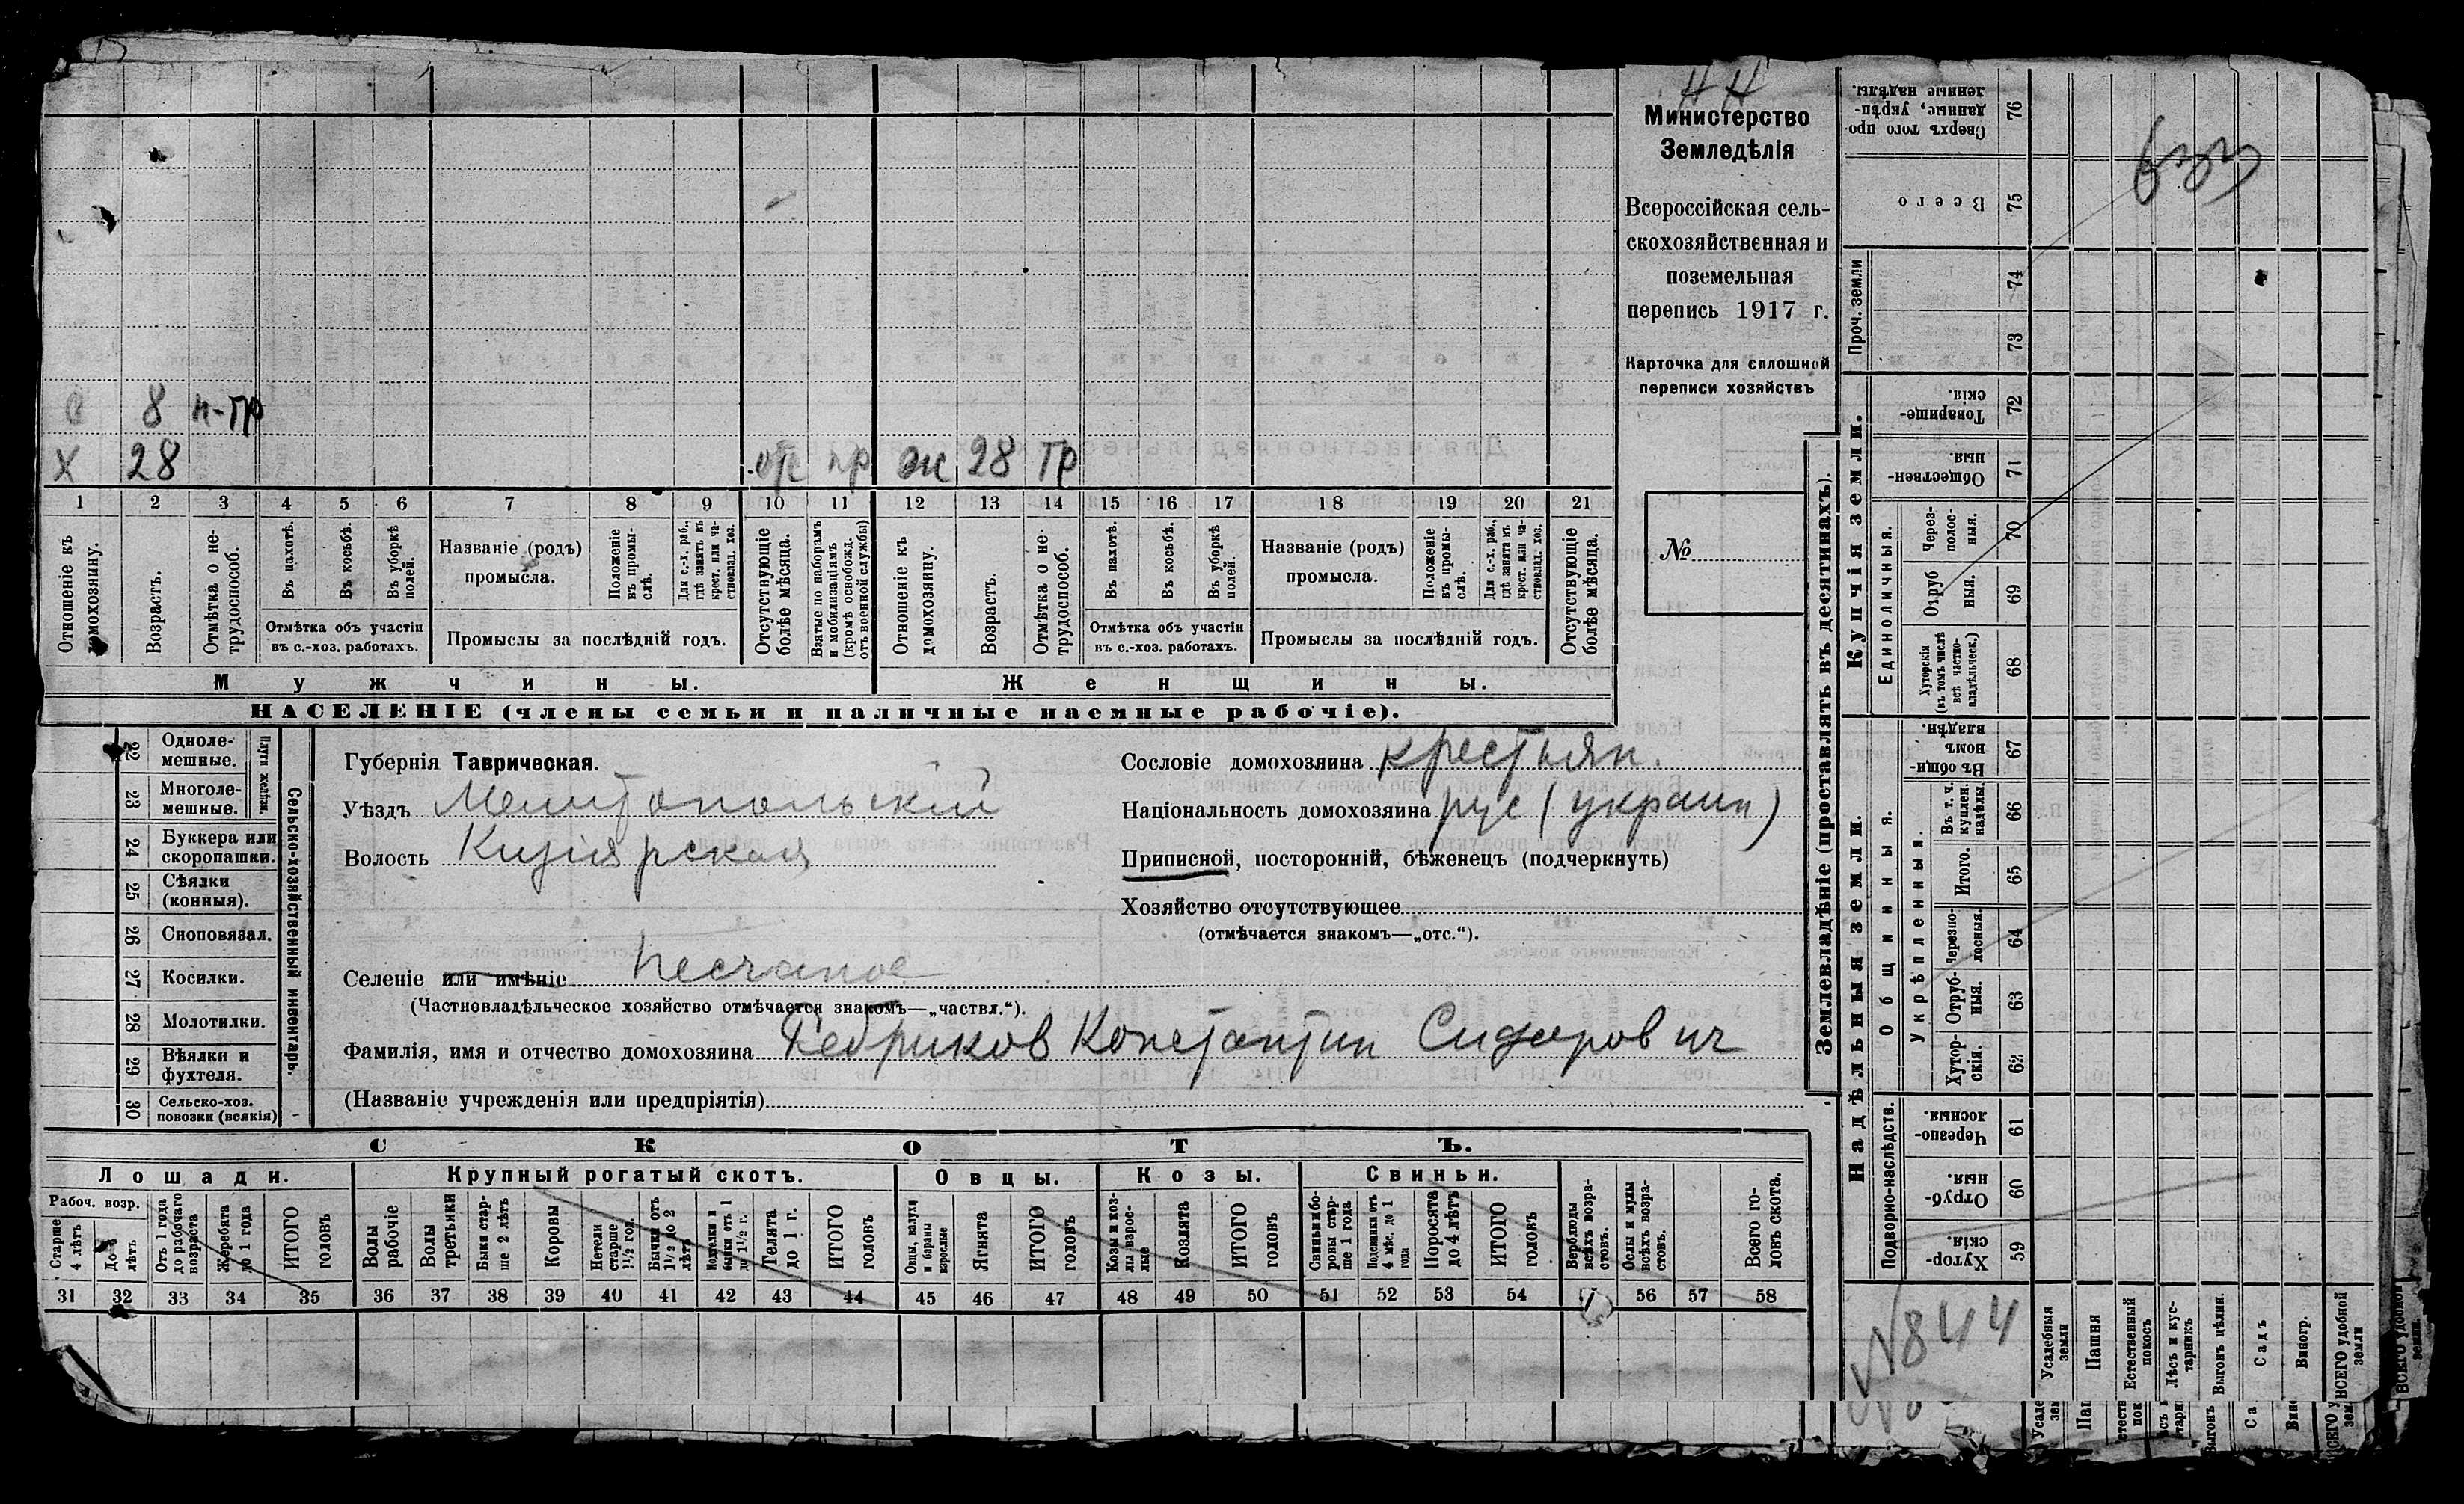 Н Н
Министерство
Земледѣлія
Всероссійская сель-
скохозяйственная и
поземельная
перепись 1917 г.
Карточка для сплошной
переписи хозяйствъ
№
8 н-тр
Х 28 отс пр ж 28 тр
1 2 3 4 5 6 7 8 9 10 11 12 13 14 15 16 17 18 19 20 21
Отношеніе къ домохозяину.
Возрастъ.
Отмѣтка о не-трудоспособ.
Въ пахотѣ.
Въ косьбѣ.
Въ уборкѣ полей.
Отмѣтка объ участіи въ с.-хоз. работахъ.
Названіе (родъ) промысла.
Положеніе въ промы-слѣ.
Для с.-х. раб., гдѣ занятъ въ крест. или ча-стновлад. хоз.
Промыслы за послѣдній годъ.
Отсутствующіе болѣе мѣсяца.
Взятые по наборамъ и мобилизаціямъ (кромѣ освобожд. отъ военной службы)
Отношеніе къ домохозяину.
Возрастъ.
Отмѣтка о не-трудоспособ.
Въ пахотѣ.
Въ косьбѣ.
Въ уборкѣ полей.
Отмѣтка объ участіи въ с.-хоз. работахъ.
Названіе (родъ) промысла.
Положеніе въ промы-слѣ.
Для с.-х. раб., гдѣ занята въ крест. или ча-стновлад. хоз.
Промыслы за послѣдній годъ.
Отсутствующіе болѣе мѣсяца.
Мужчины.
Женщины.
НАСЕЛЕНІЕ (члены семьи и наличные наемные рабочіе).
22 Одноле-мешные.
23 Многоле-мешные.
Плуги желѣзн.
24 Буккера или скоропашки.
25 Сѣялки (конныя).
26 Сноповязал.
27 Косилки.
28 Молотилки.
29 Вѣялки и фухтеля.
30 Сельско-хоз. повозки (всякія)
Сельско-хозяйственный инвентарь.
Губернія Таврическая.
Уѣздъ Мелитопольскій
Волость Кизіярская
Селеніе или имѣніе Песчаное
(Частновладѣльческое хозяйство отмѣчается знакомъ—„частвл.“).
Фамилія, имя и отчество домохозяина Бебриков Константин Сидорович
(Названіе учрежденія или предпріятія)
Сословіе домохозяина крестьян.
Національность домохозяина рус (украин)
Приписной, посторонній, бѣженецъ (подчеркнуть)
Хозяйство отсутствующее
(отмѣчается знакомъ—„отс.“).
СКОТЪ.
Лошади.
Рабоч. возр.
Старше 4 лѣтъ
До 4 лѣтъ
Отъ 1 года до рабочаго возраста
Жеребята до 1 года
ИТОГО головъ
Крупный рогатый скотъ.
Волы рабочіе
Волы третьяки
Быки стар-ше 2 лѣтъ
Коровы
Нетели старше 1½ год.
Бычки отъ 1½ до 2 лѣтъ
Мошелки и бычки отъ 1 до 1½ г.
Телята до 1 г.
ИТОГО головъ
Овцы.
Овцы, валухи и бараны взрослые
Ягнята
ИТОГО головъ
Козы.
Козы и коз-лы взрос-лые
Козлята
ИТОГО головъ
Свиньи.
Свиньи и бо-ровы стар-ше 1 года
Подсвинки отъ 4 мѣс. до 1 года
Поросята до 4 лѣтъ
ИТОГО головъ
Верблюды всѣхъ возра-стовъ.
Ослы и мулы всѣхъ возра-стовъ.
Всего го-ловъ скота.
31 32 33 34 35 36 37 38 39 40 41 42 43 44 45 46 47 48 49 50 51 52 53 54 56 57 58
Землевладѣніе (проставлять въ десятинахъ).
Купчія земли.
Сверхъ того про-данные, укрѣп-ленные надѣлы. 76
Всего 75
Проч. земли 74 73
Товарище-скія. 72
Обществен-ныя. 71
Единоличныя.
Через-полос-ныя. 70
Отруб ныя. 69
Хуторскія (въ томъ числѣ всѣ частно-владѣльческ.) 68
Надѣльныя земли.
Общинныя.
Въ общи-номъ владѣн. 67
Укрѣпленныя.
Въ т. ч. куплен. надѣлы. 66
Итого. 65
Черезпо-лосныя. 64
Отруб-ныя. 63
Хутор-скія. 62
Подворно-наслѣдств.
Черезпо-лосныя. 61
Отруб-ныя. 60
Хутор-скія. 59
№844
Усадебныя земли
Пашня
Естественный покосъ
Лѣсъ и кус-тарникъ
Выгонъ цѣлин.
Садъ
Виногр.
ВСЕГО удобной земли
ВСЕГО удобной земли.